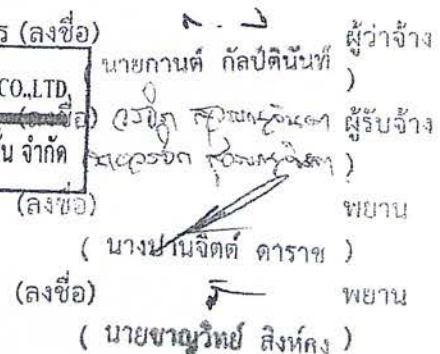 ร (ลงชื่อ) ผู้ว่าจ้าง
นายกานต์ กัลป์ตินันท์ )
CO.,LTD.
ผู้รับจ้าง
น จำกัด )
(ลงชื่อ) พยาน
( นางปานจิตต์ ดาราช )
(ลงชื่อ) พยาน
( นายชาญวิทย์ สิงห์คง )